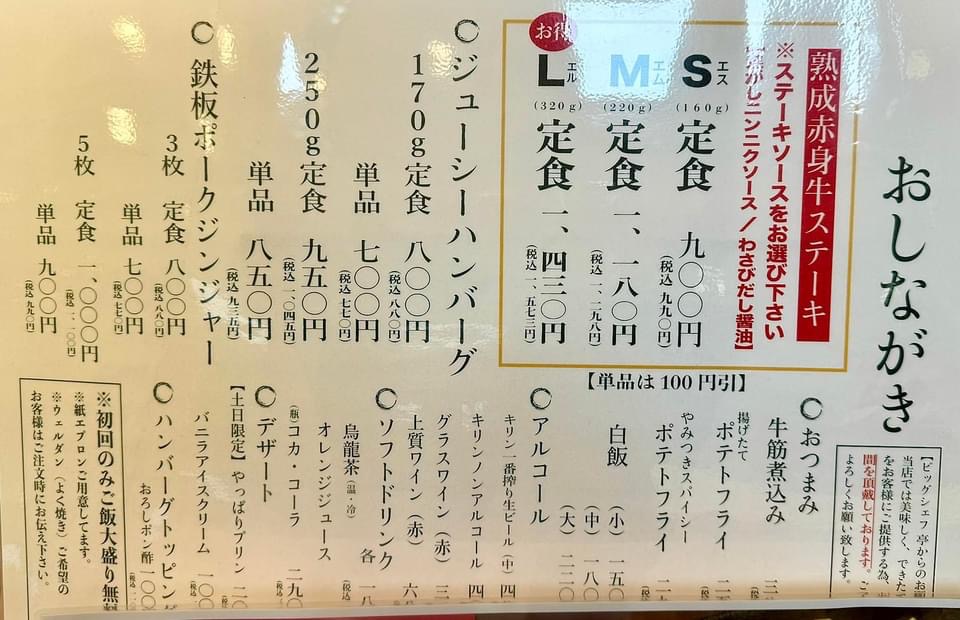 おしながき
【ビッグシェフ亭からのお
当店では美味しく、できた
をお客様にご提供する為、
間を頂戴しております。ご
よろしくお願い致します。
熟成赤身牛ステーキ
※ステーキソースをお選び下さい
がしニンニクソース／わさびだし醤油】
S エス (160g) 定食 九〇〇円
(税込 九九〇円)
M エム (220g) 定食 一、一八〇円
(税込 一、二九八円)
お得
L エル (320g) 定食 一、四三〇円
(税込 一、五七三円)
【単品は100円引】
〇ジューシーハンバーグ
170g 定食 八〇〇円
(税込 八八〇円)
単品 七〇〇円
(税込 七七〇円)
250g 定食 九五〇円
(税込 一、〇四五円)
単品 八五〇円
(税込 九三五円)
〇鉄板ポークジンジャー
3枚 定食 八〇〇円
(税込 八八〇円)
単品 七〇〇円
(税込 七七〇円)
5枚 定食 一、〇〇〇円
(税込 一、一〇〇円)
単品 九〇〇円
(税込 九九〇円)
〇おつまみ
牛筋煮込み
揚げたて
ポテトフライ
やみつきスパイシー
ポテトフライ
白飯 (小) 一五〇
(中) 一八〇
(大) 二二〇
〇アルコール
キリン一番搾り生ビール(中) 四
キリンノンアルコール 四
グラスワイン(赤) 三
上質ワイン(赤) 六
〇ソフトドリンク
各 一八
烏龍茶(温・冷)
オレンジジュース
(瓶)コカ・コーラ 二九〇
〇デザート
【土日限定】やっぱりプリン 二〇
バニラアイスクリーム 一〇〇
〇ハンバーグトッピング
おろしポン酢 一〇〇
※初回のみご飯大盛り無料
※紙エプロンご用意してます。
※ウェルダン(よく焼き)ご希望の
お客様はご注文時にお伝え下さい。